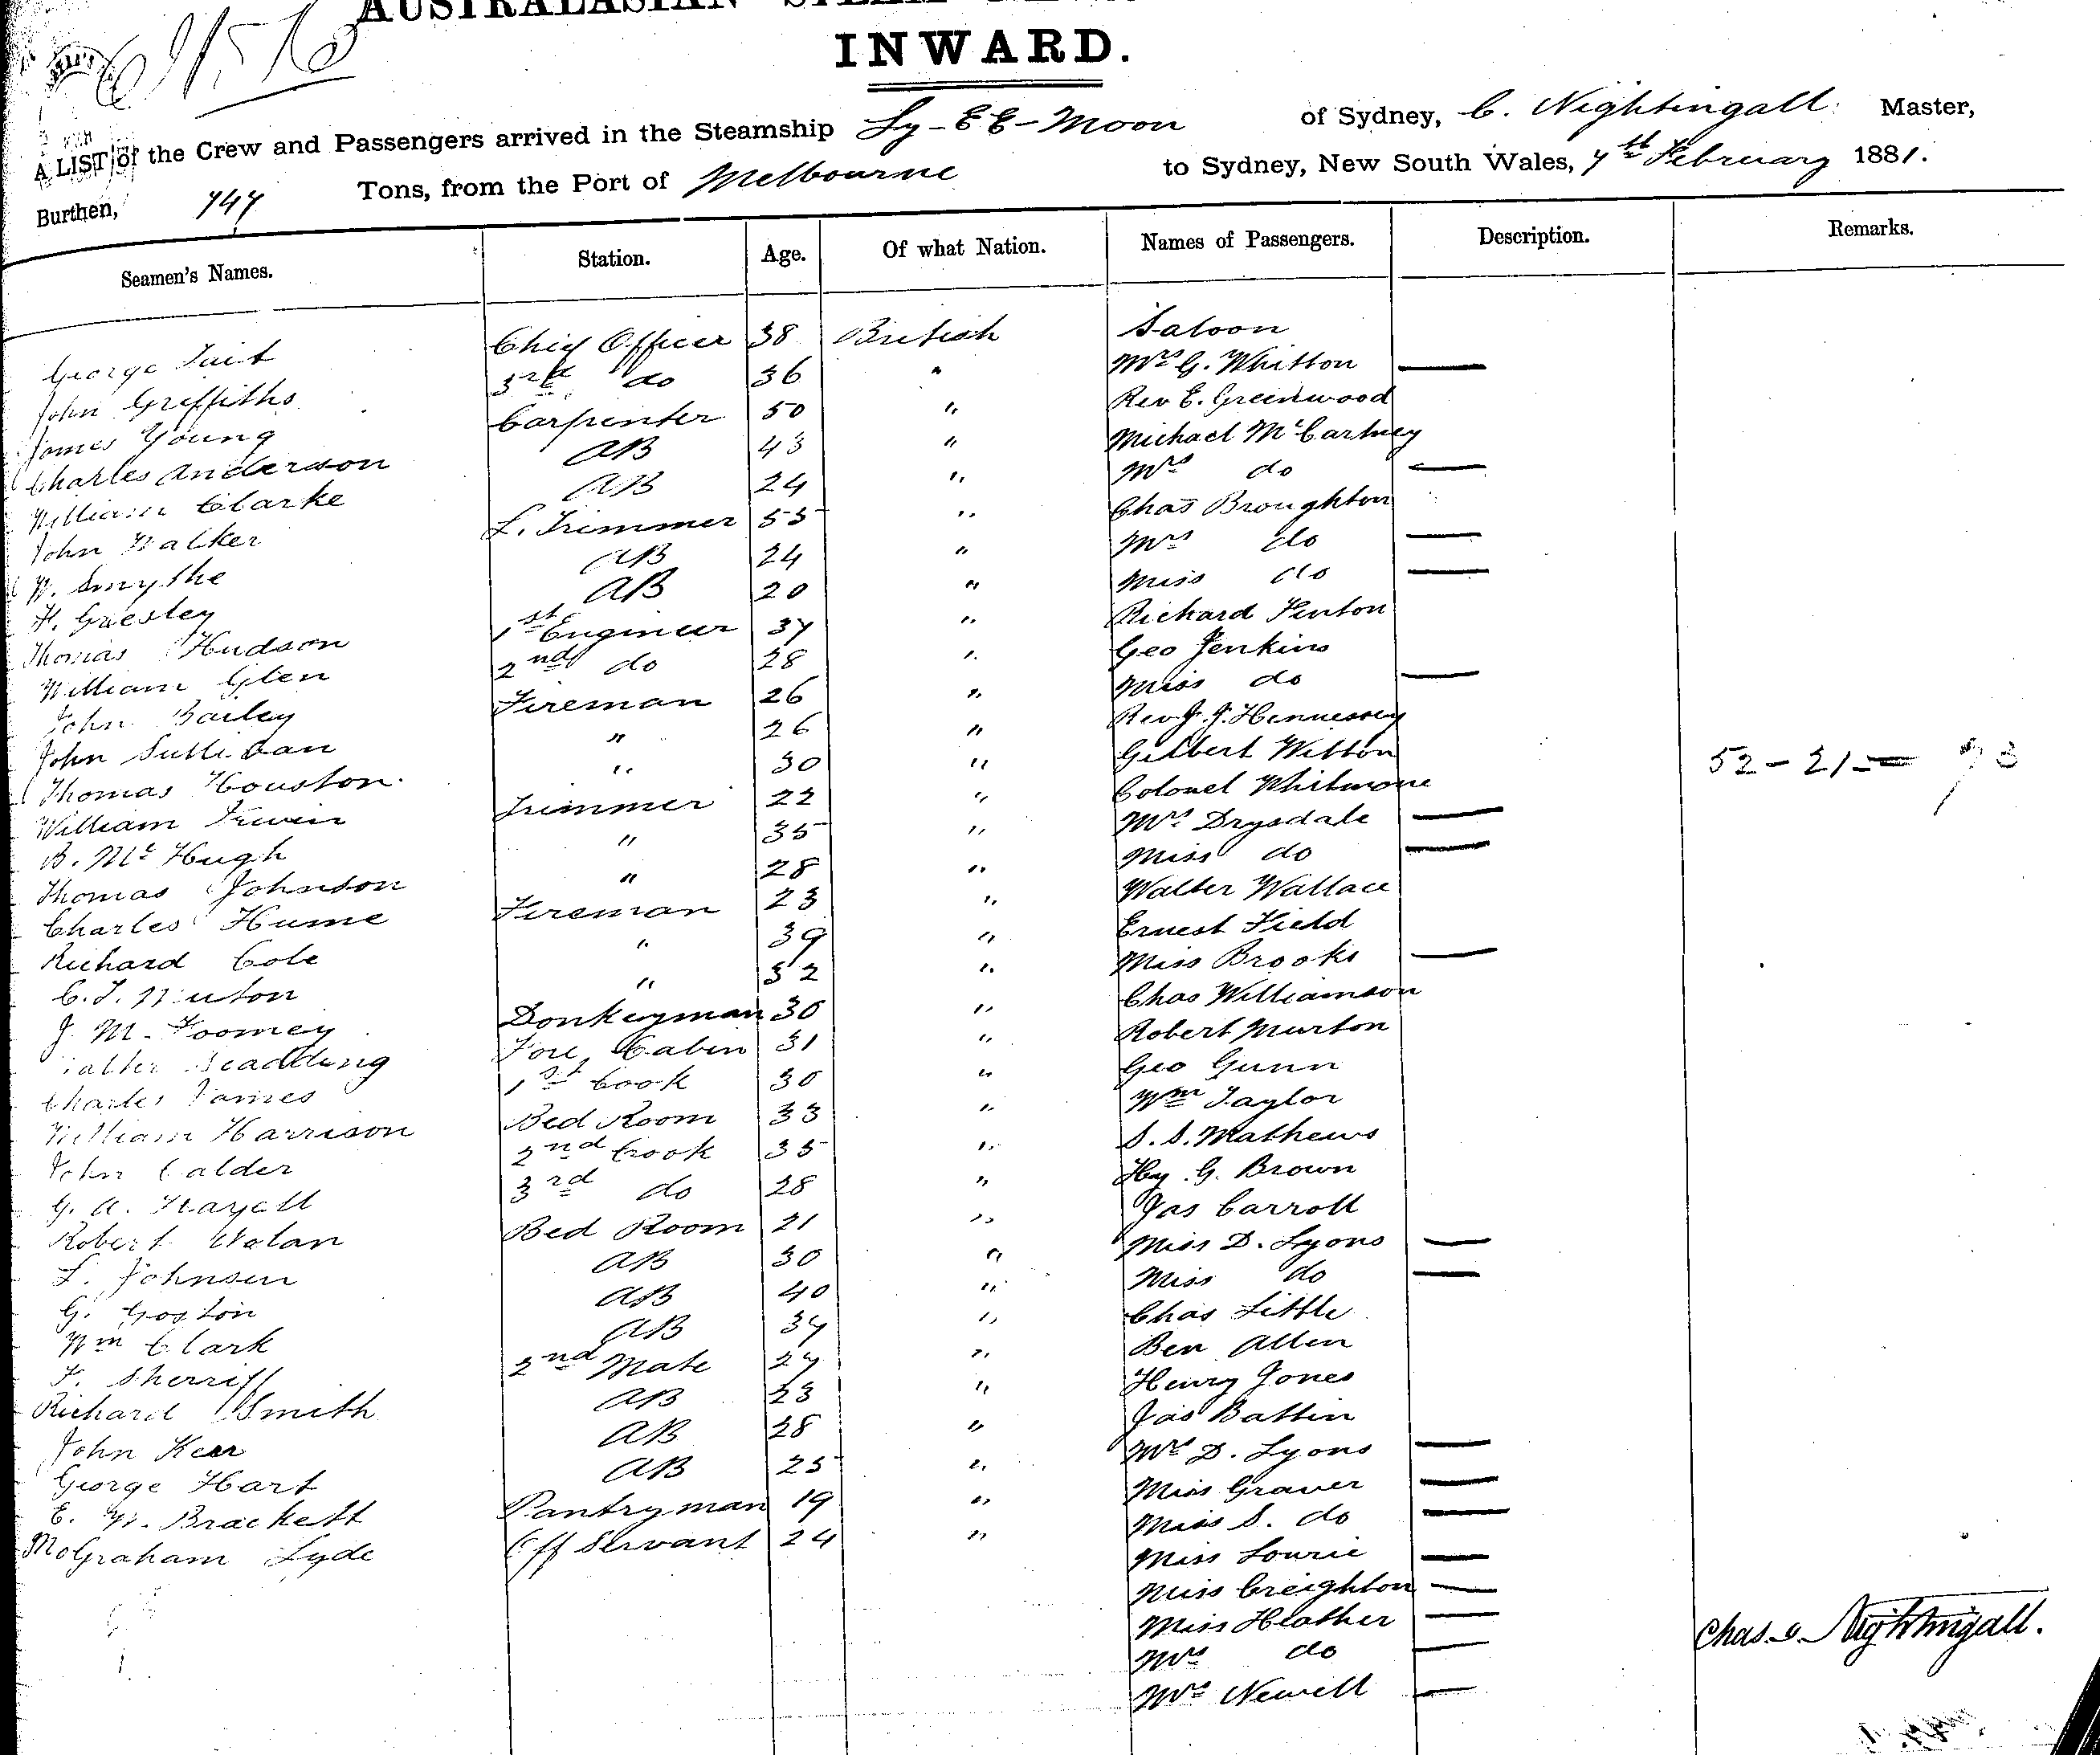 AUSTRALASIAN STEAM
INWARD.
A LIST of the Crew and Passengers arrived in the Steamship Ly-EE-Moon of Sydney, C. Nightingall Master,
Burthen, 747 Tons, from the Port of Melbourne to Sydney, New South Wales, 7th February 1881.
Seamen's Names. Station. Age. Of what Nation. Names of Passengers. Description. Remarks.
Saloon
George Tait Chief Officer 38 British Mrs G. Whitton —
John Griffiths 3rd do 36 " Rev E. Greenwood
James Young Carpenter 50 " Michael McCartney
Charles Anderson AB 43 " Mrs do —
William Clarke AB 24 " Chas Broughton
John Walker L. Trimmer 55 " Mrs do —
W. Smythe AB 24 " Miss do —
H. Griesley AB 20 " Richard Fenton
Thomas Hudson 1st Engineer 37 " Geo Jenkins
William Glen 2nd do 28 " Miss do —
John Bailey Fireman 26 " Rev J. J. Hennessey
John Sullivan " 26 " Gilbert Witton
Thomas Houston " 30 " Colonel Whitmore
William Irwin Trimmer 22 " Mrs Drysdale —
B. McHugh " 35 " Miss do —
Thomas Johnson " 28 " Walter Wallace
Charles Hume Fireman 23 " Ernest Field
Richard Cole " 39 " Miss Brooks —
C. J. Newton " 32 " Chas Williamson
J. M. Toomey Donkeyman 30 " Robert Murton
Scadding Fore Cabin 31 " Geo Gunn
Charles James 1st Cook 30 " Wm Taylor
William Harrison Bed Room 33 " S. S. Mathews
John Calder 2nd Cook 35 " Hy. G. Brown
G. A. 3rd do 28 " Jas Carroll
Robert Nolan Bed Room 21 " Miss D. Lyons —
L. Johnsen AB 30 " Miss do —
G. Goston AB 40 " Chas Little
Wm Clark AB 34 " Ben Allen
F. Sherriff 2nd Mate 27 " Henry Jones
Richard Smith AB 23 " Jas Battin
John Kerr AB 28 " Mrs D. Lyons —
George Hart AB 25 " Miss Graver —
E. W. Brackett Pantryman 19 " Miss S. do —
McGraham Lyde Off Servant 24 " Miss Lourie —
Miss Creighton —
Miss Heather —
Mrs do —
Mrs Newell —
52 - 21 = 73
Chas. Nightingall.